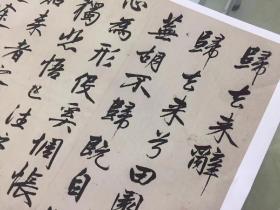 歸去来辭
歸去来兮田園
蕪胡不歸既自
心為形役奚惆悵
獨悲悟已往
来者